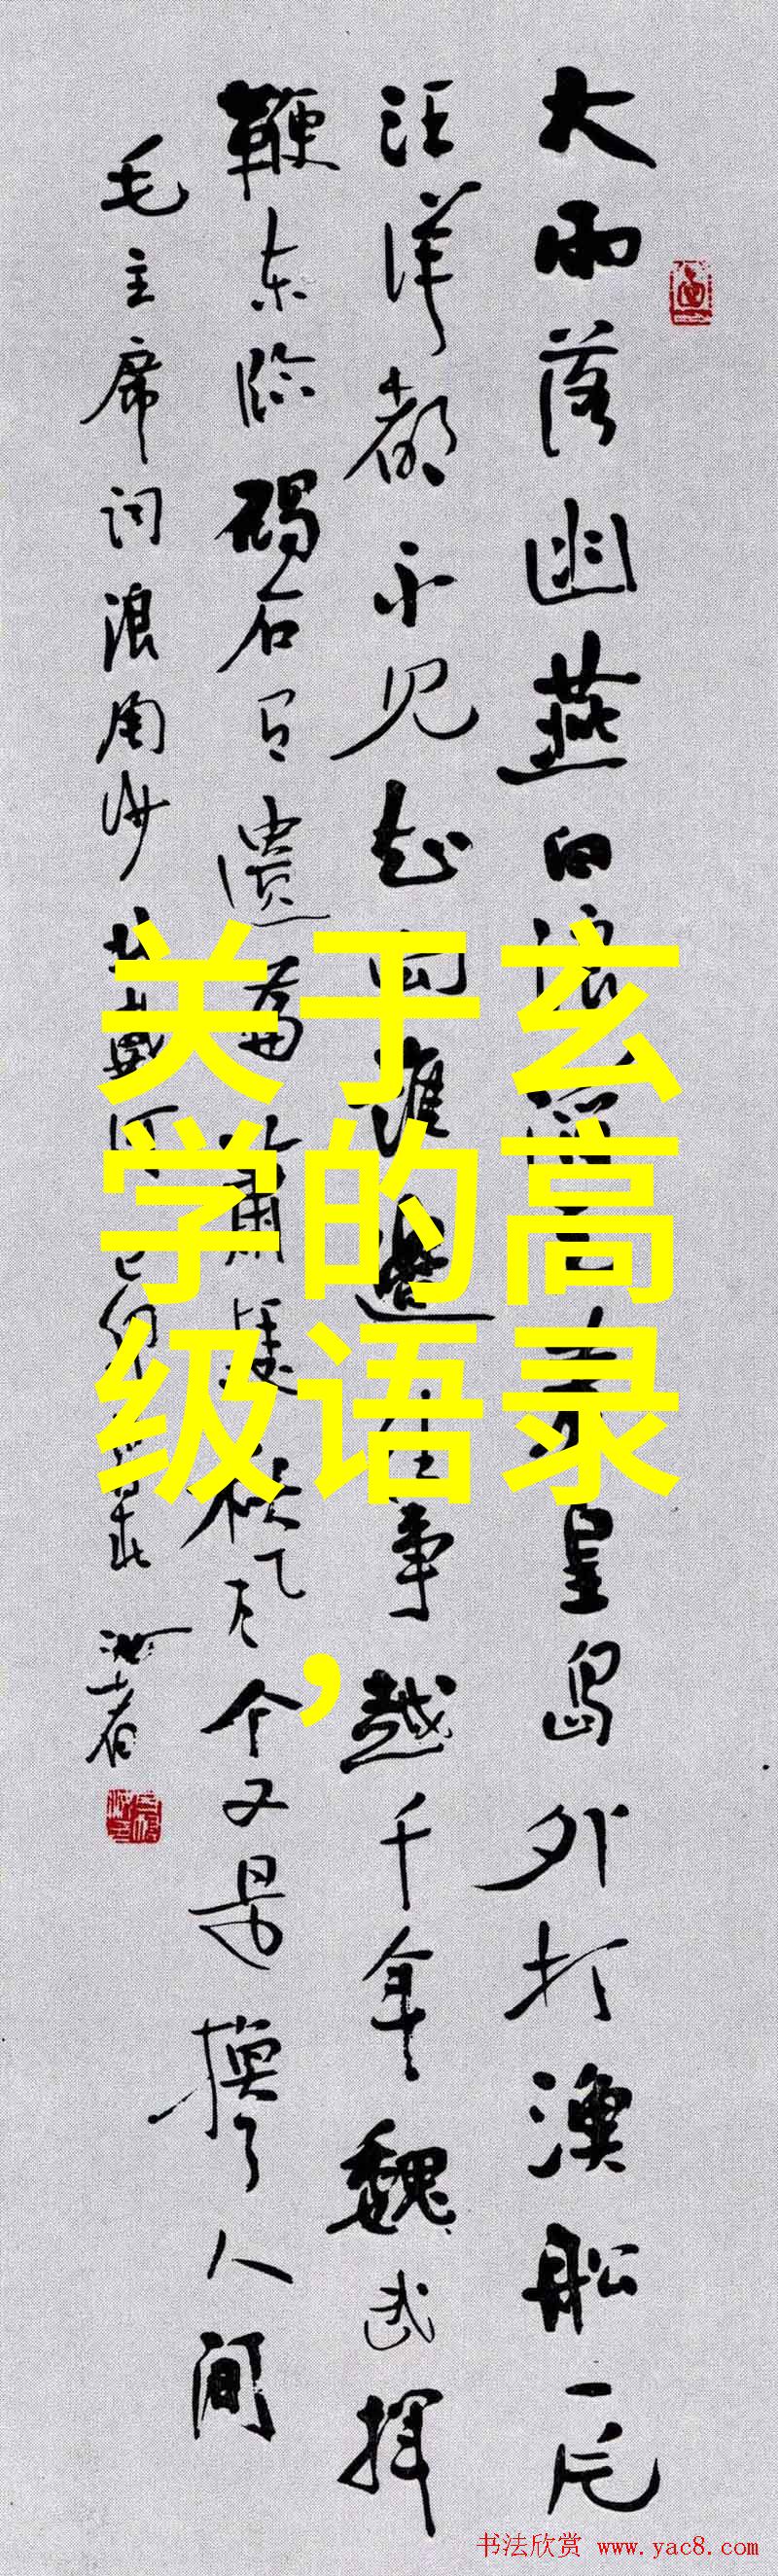 大雨落幽燕白浪滔天秦皇岛外打漁船一片
汪洋都不见知向誰邊往事越千年魏武揮
鞭东临碣石有遺篇蕭瑟秋风今又是换了人间
毛主席词浪淘沙北戴河己卯
关于玄
学的高
级语录
，
书法欣赏 www.yac8.com